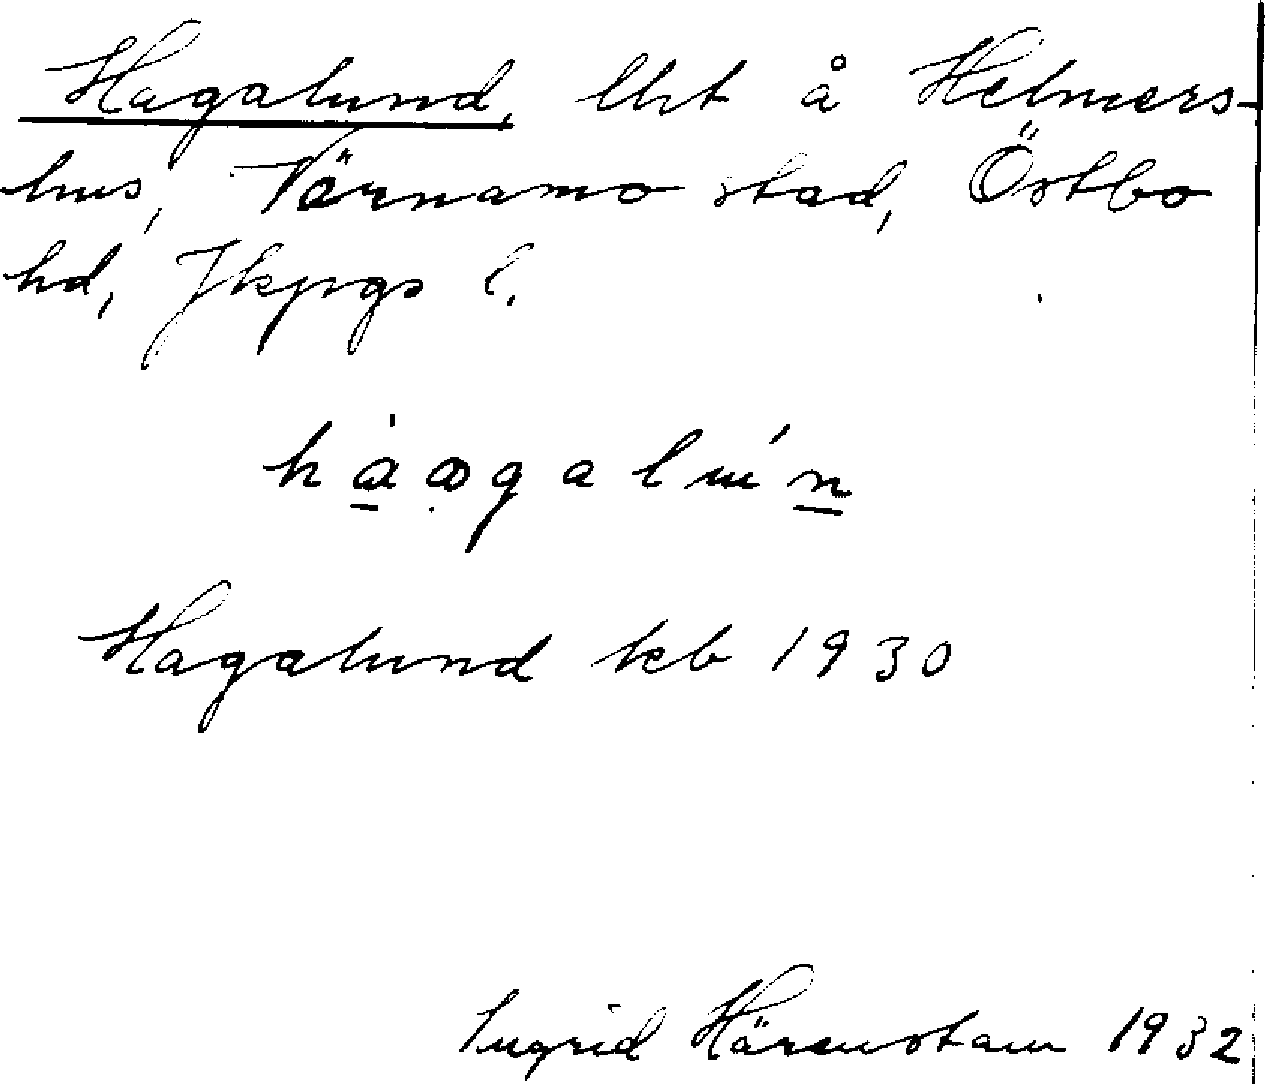 Hagalund, lht å Helmers-
hus, Värnamo stad, Östbo
hd, Jkpgs l.
Hagalund kb 1930
Ingrid Härenstam 1932